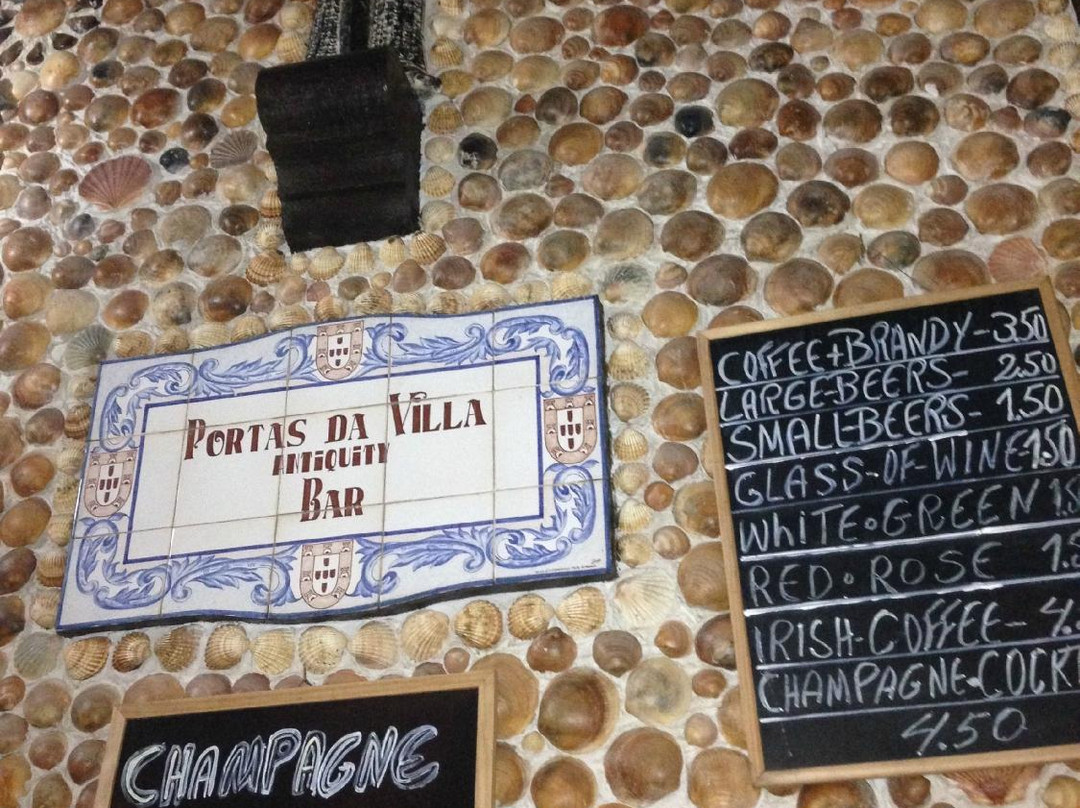 PORTAS DA VILLA
ANTIQUITY
BAR
CHAMPAGNE
COFFEE+BRANDY-3.50
LARGE-BEERS- 2.50
SMALL-BEERS- 1.50
GLASS-OF-WINE-1.50
WHITE•GREEN
RED: ROSE
IRISH-COFFEE-
CHAMPAGNE•
4.50